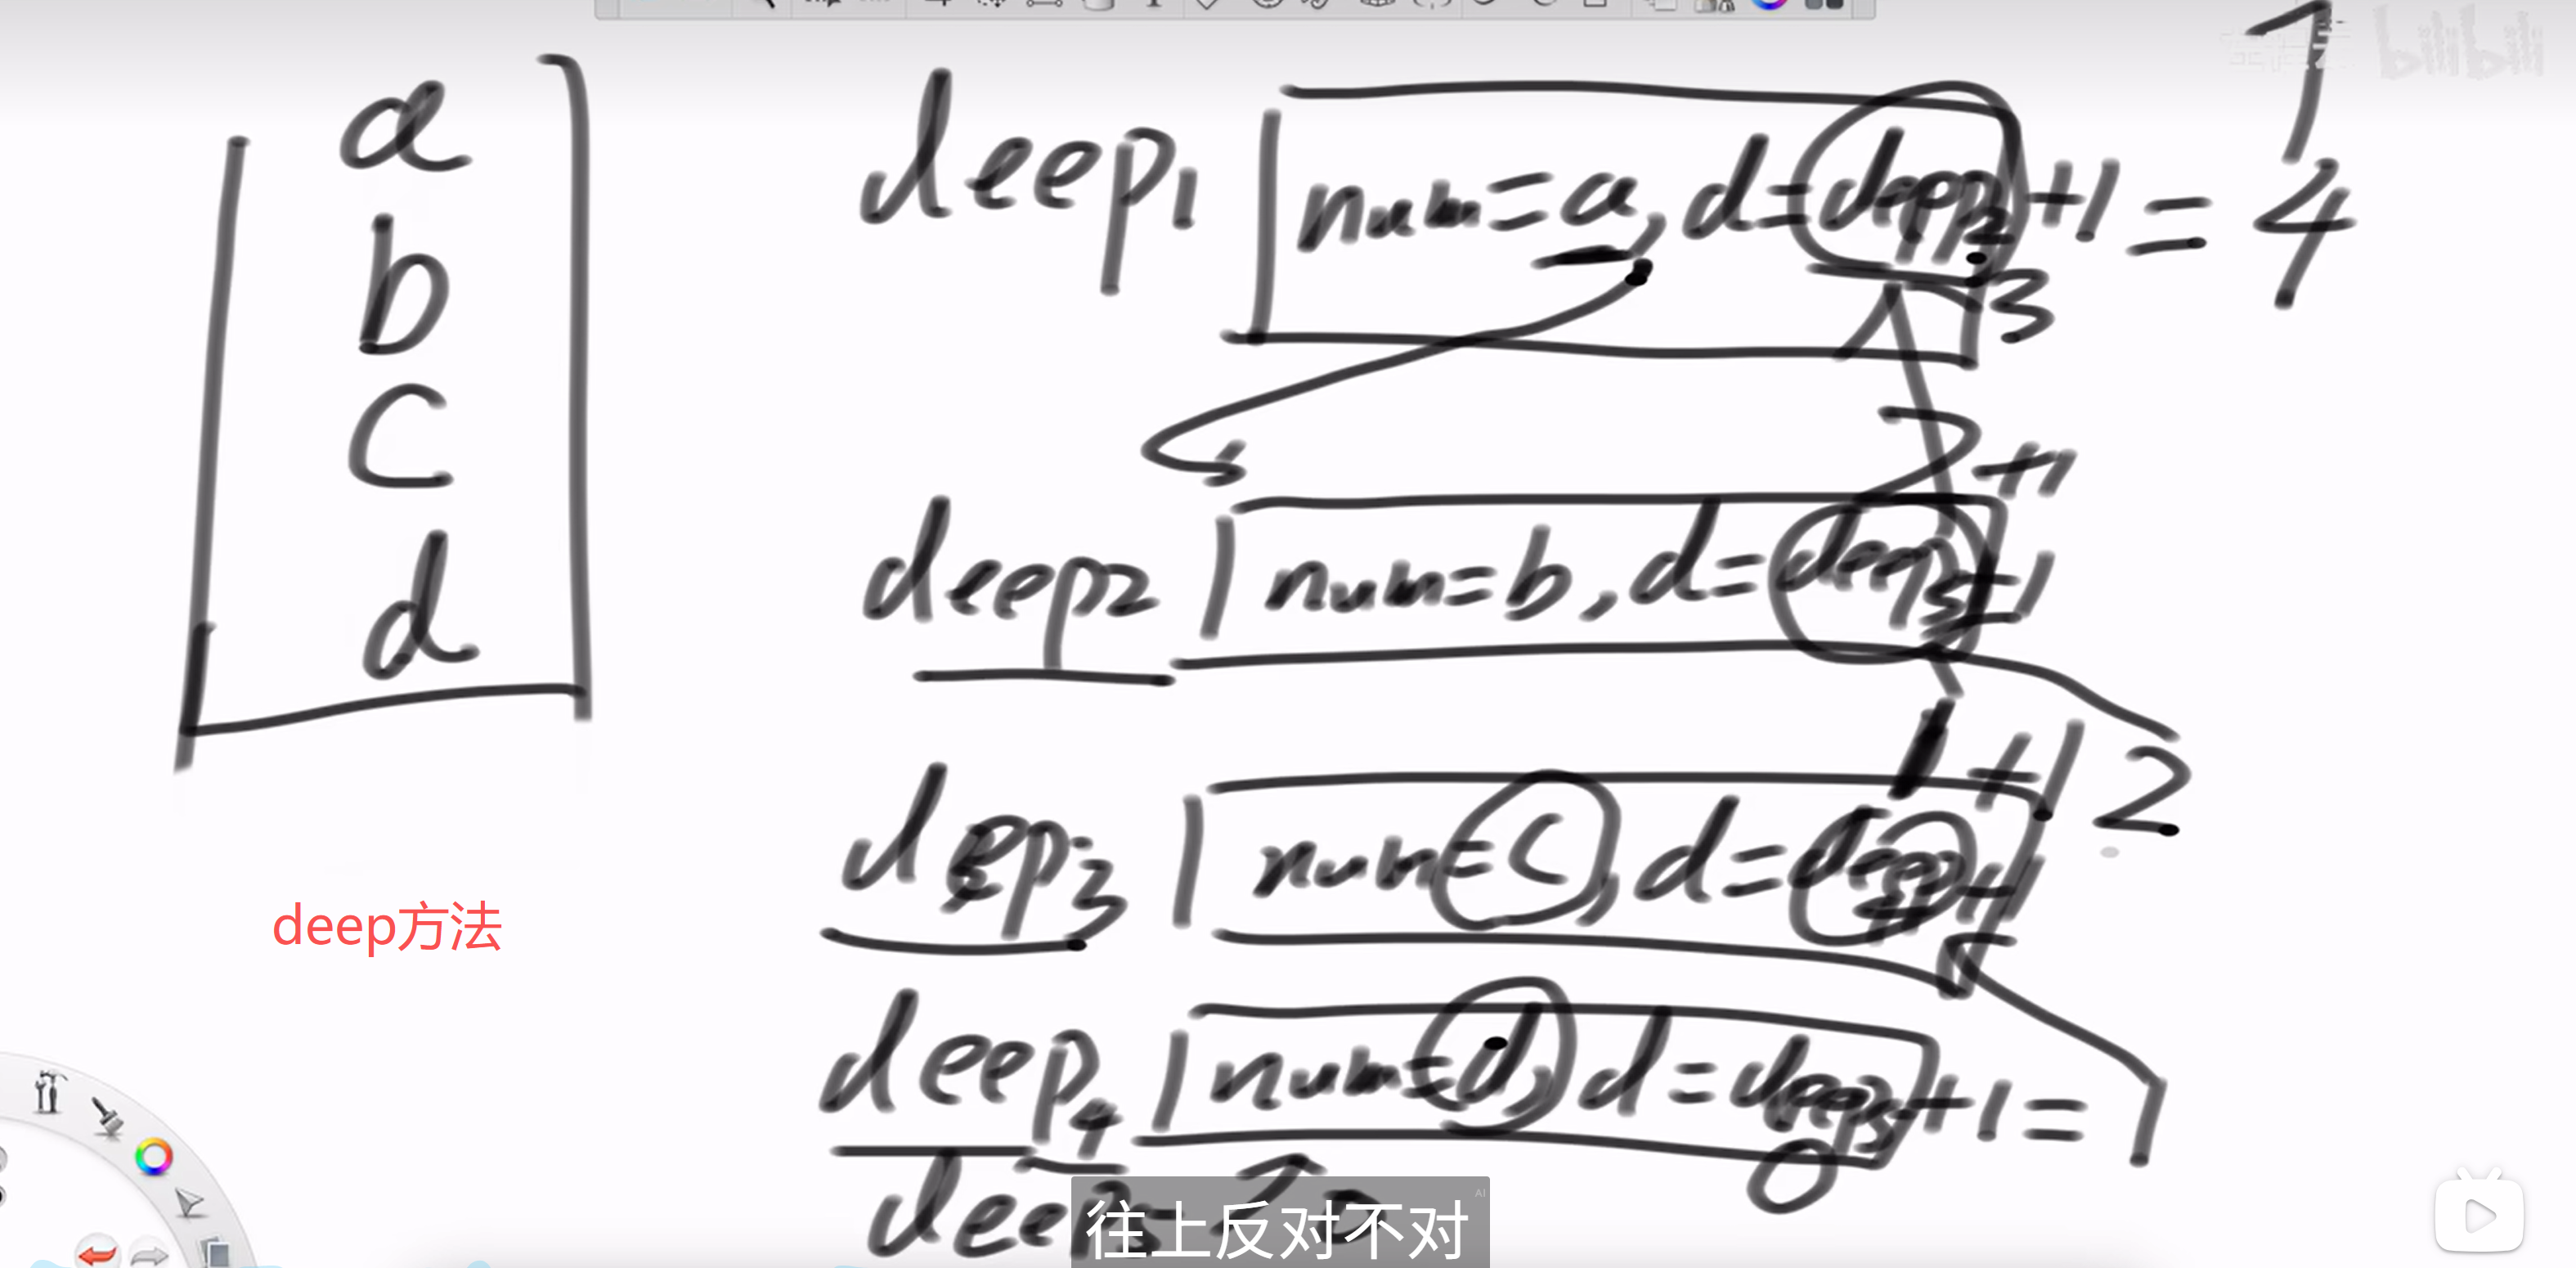 bilibili
a
b
c
d
deep1 num=a, d=deep2+1=4
3
2+1
deep2 num=b, d=deep3+1
1+1 2
deep3 num=c, d=deep4+1
deep4 num=d, d=deep5+1=1
0
deep方法
往上反对不对
AI